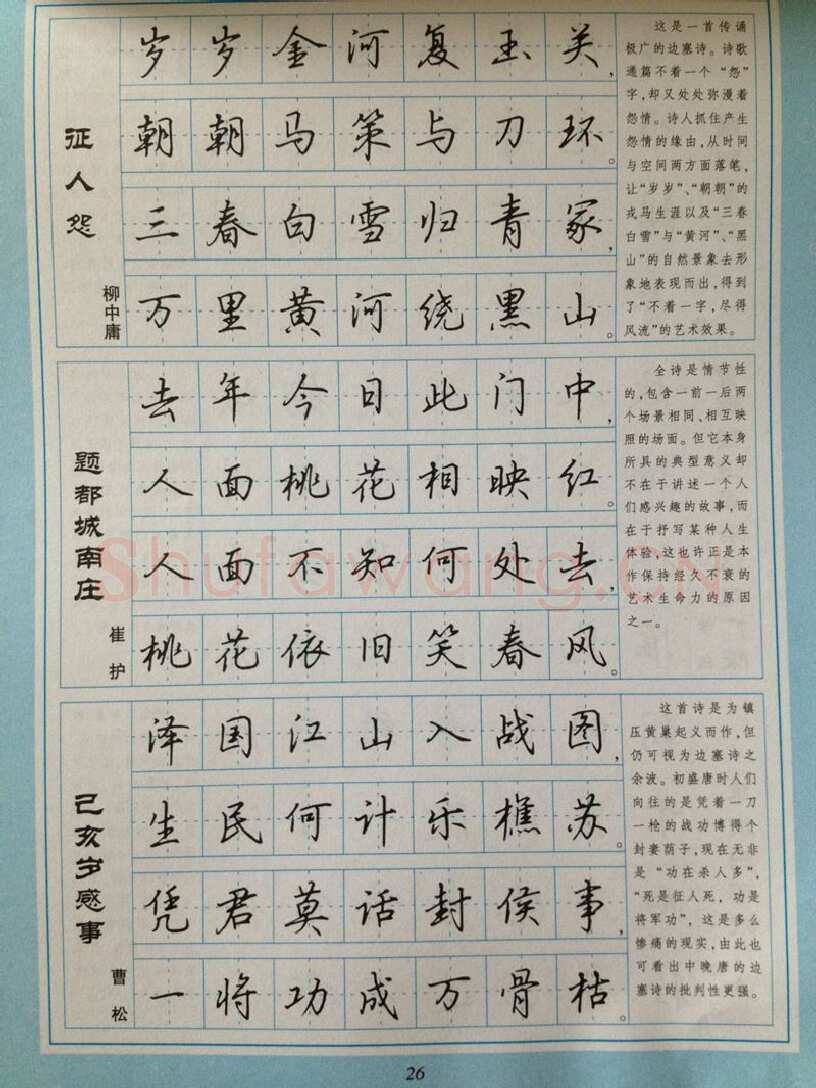 征人怨
柳中庸
岁岁金河复玉关,
朝朝马策与刀环。
三春白雪归青冢,
万里黄河绕黑山。
这是一首传诵
极广的边塞诗。诗歌
通篇不着一个“怨”
字,却又处处弥漫着
怨情。诗人抓住产生
怨情的缘由,从时间
与空间两方面落笔,
让“岁岁”、“朝朝”的
戎马生涯以及“三春
白雪”与“黄河”、“黑
山”的自然景象去形
象地表现而出,得到
了“不着一字,尽得
风流”的艺术效果。
题都城南庄
崔护
去年今日此门中,
人面桃花相映红。
人面不知何处去,
桃花依旧笑春风。
全诗是情节性
的,包含一前一后两
个场景相同、相互映
照的场面。但它本身
所具的典型意义却
不在于讲述一个人
们感兴趣的故事,而
在于抒写某种人生
体验,这也许正是本
作保持经久不衰的
艺术生命力的原因
之一。
己亥岁感事
曹松
泽国江山入战图,
生民何计乐樵苏。
凭君莫话封侯事,
一将功成万骨枯。
这首诗是为镇
压黄巢起义而作,但
仍可视为边塞诗之
余波。初盛唐时人们
向往的是凭着一刀
一枪的战功博得个
封妻荫子,现在无非
是“功在杀人多”,
“死是征人死,功是
将军功”,这是多么
惨痛的现实,由此也
可看出中晚唐的边
塞诗的批判性更强。
Shufawang.cn
26